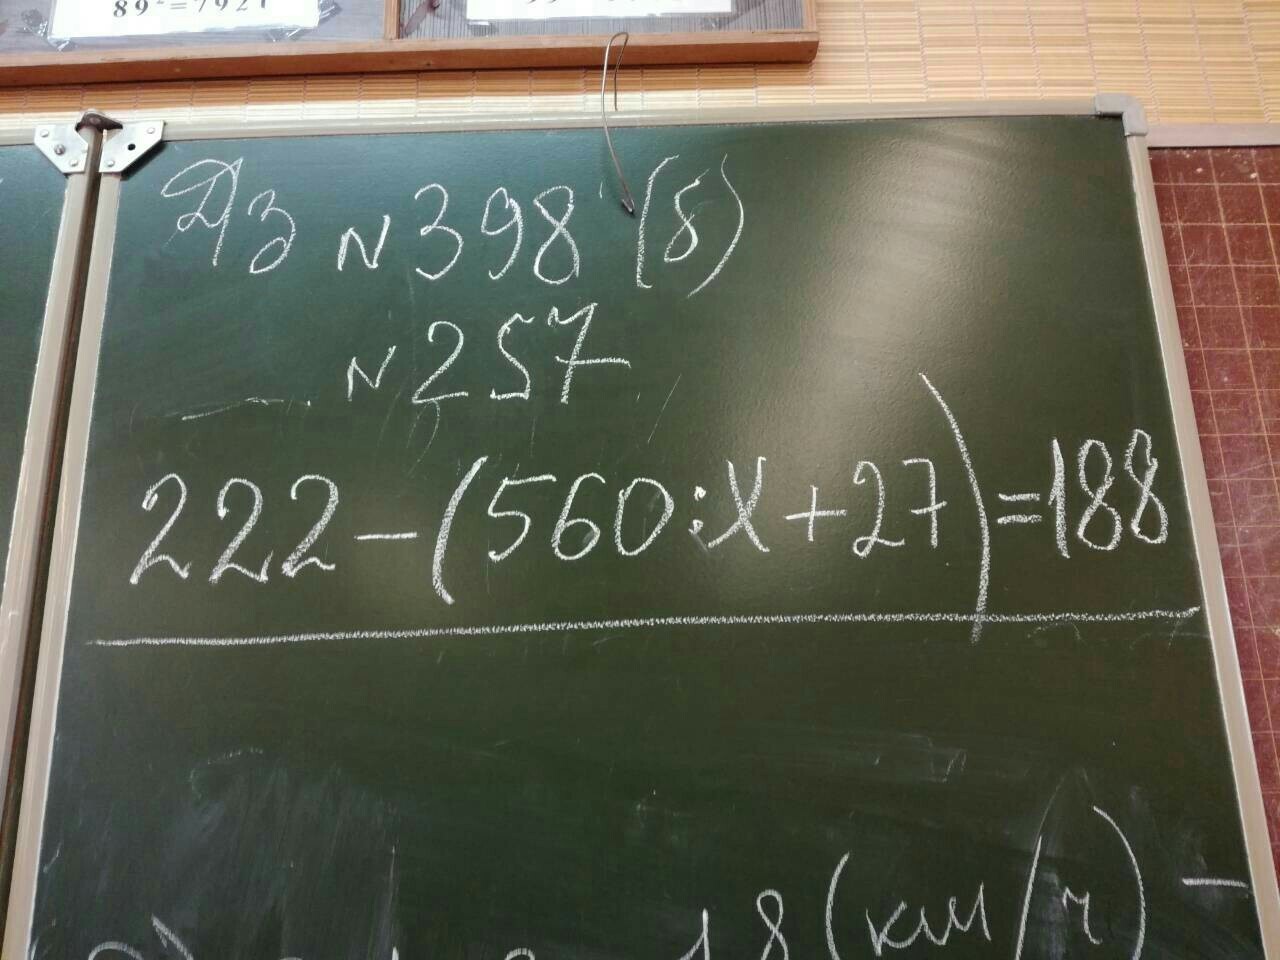 89²=7921
Дз №398 (8)
№257
222-(560:X+27)=188
18(км/ч) -